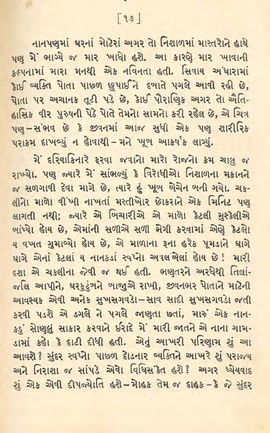 [ ૧૩ ]
નાનપણમાં ઘરનાં મોટેરાં અગર તો નિશાળમાં માસ્તરોને હાથે
પણ મેં ભાગ્યે જ માર ખાધો હશે. આ કારણે માર ખાવાની
કલ્પનામાં મારા મનથી એક નવિનતા હતી. સિવાય અંધારામાં
કોઈ વ્યક્તિ પોતા પાછળ છુપાઈને દબાતે પગલે આવી રહી છે,
પોતા પર અચાનક તૂટી પડે છે, કોઈ પૌરાણિક અગર તો ઐતિ-
હાસિક વીર પુરુષની પેઠે પોતે તેમનો સામનો કરી રહેલ છે, એ ચિત્ર
પણ—સંભવ છે કે જીવનમાં આજ સુધી એક પણ શારીરિક
પરાક્રમ દાખવ્યું ન હોવાથી—મને ખૂબ આકર્ષક લાગ્યું.
મેં દરિયાકિનારે ફરવા જવાનો મારો રોજનો ક્રમ ચાલુ જ
રાખ્યો. પણ જ્યારે મેં સાંભળ્યું કે વિરોધીઓ નિશાળના મકાનને
જ સળગાવી દેવા માગે છે, ત્યારે હું ખૂબ બેચેન બની ગયો. ચક-
લીનો માળો વીંખી નાખતાં મસ્તીખોર છોકરાને એક મિનિટ પણ
લાગતી નથી; જ્યારે એ બિચારીએ એ માળો કેટલી મુશ્કેલીએ
બાંધ્યો હોય છે, એમાંની સળીએ સળી ભેગી કરવામાં એણે કેટલો
ય વખત ગુમાવ્યો હોય છે, એ માળાના રૂના હરેક પૂમડાને ધાગે
ધાગે એનાં કેટલાં ય નાનકડાં સ્વપ્નો અટવાયેલાં હોય છે ! મારી
દશા એ ચકલીના જેવી જ થઈ હતી. ભણતરને અરધેથી તિલાં-
જલિ આપીને, ઘરકુટુંબને નારાજ રાખી, જીવનભર પોતાને માટેની
આવશ્યક એવી અનેક સુખસગવડો—સાવ સાદી સુખસગવડો જતી
કરવી પડશે એ ડગલે ને પગલે જાણતા છતાં, મારું એક નાન-
કડું સોણલું સાકાર કરવાને ઈરાદે મેં મારી જાતને એ નાના ગામ-
ડામાં કહો કે દાટી દીધી હતી. એનું આખરી પરિણામ શું આ
આવશે? સુંદર સ્વપ્નો પાછળ દોડનાર વ્યક્તિને આખરે શું પરાજય
અને નિરાશા જ સાંપડે એવો વિધિસંકેત હશે? અગર ધ્યેયવાદ
શું એક એવી દીપજ્યોતિ હશે—મોહક તેમ જ દાહક—કે જે સુંદર